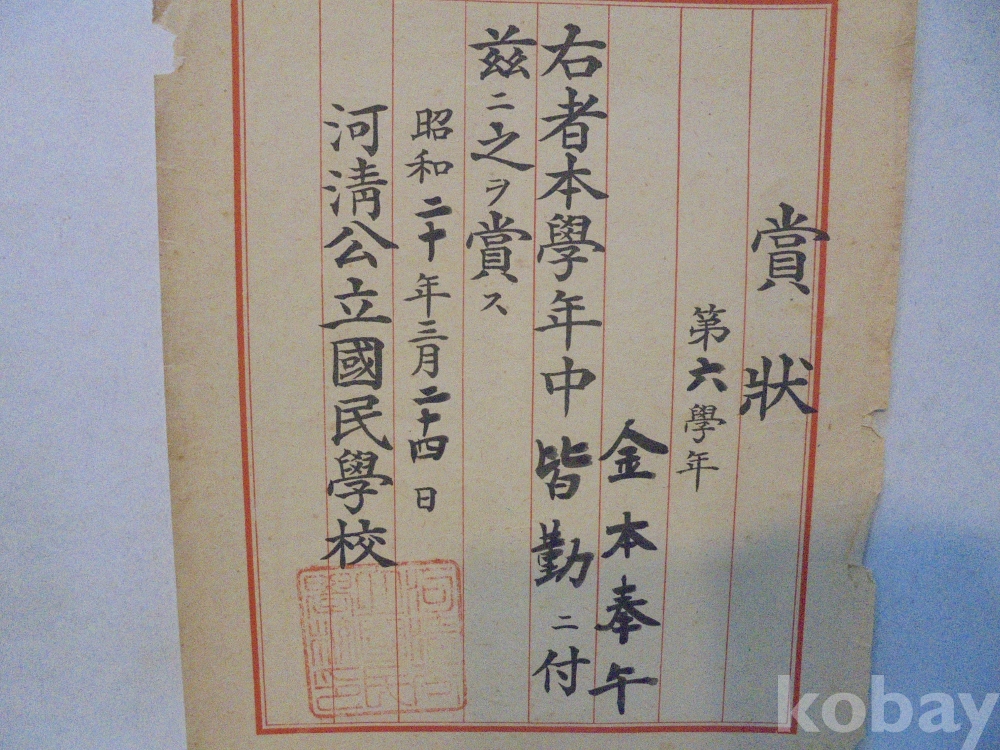 賞狀
第六學年
金本奉午
右者本學年中皆勤ニ付
茲ニ之ヲ賞ス
昭和二十年三月二十四日
河淸公立國民學校
kobay